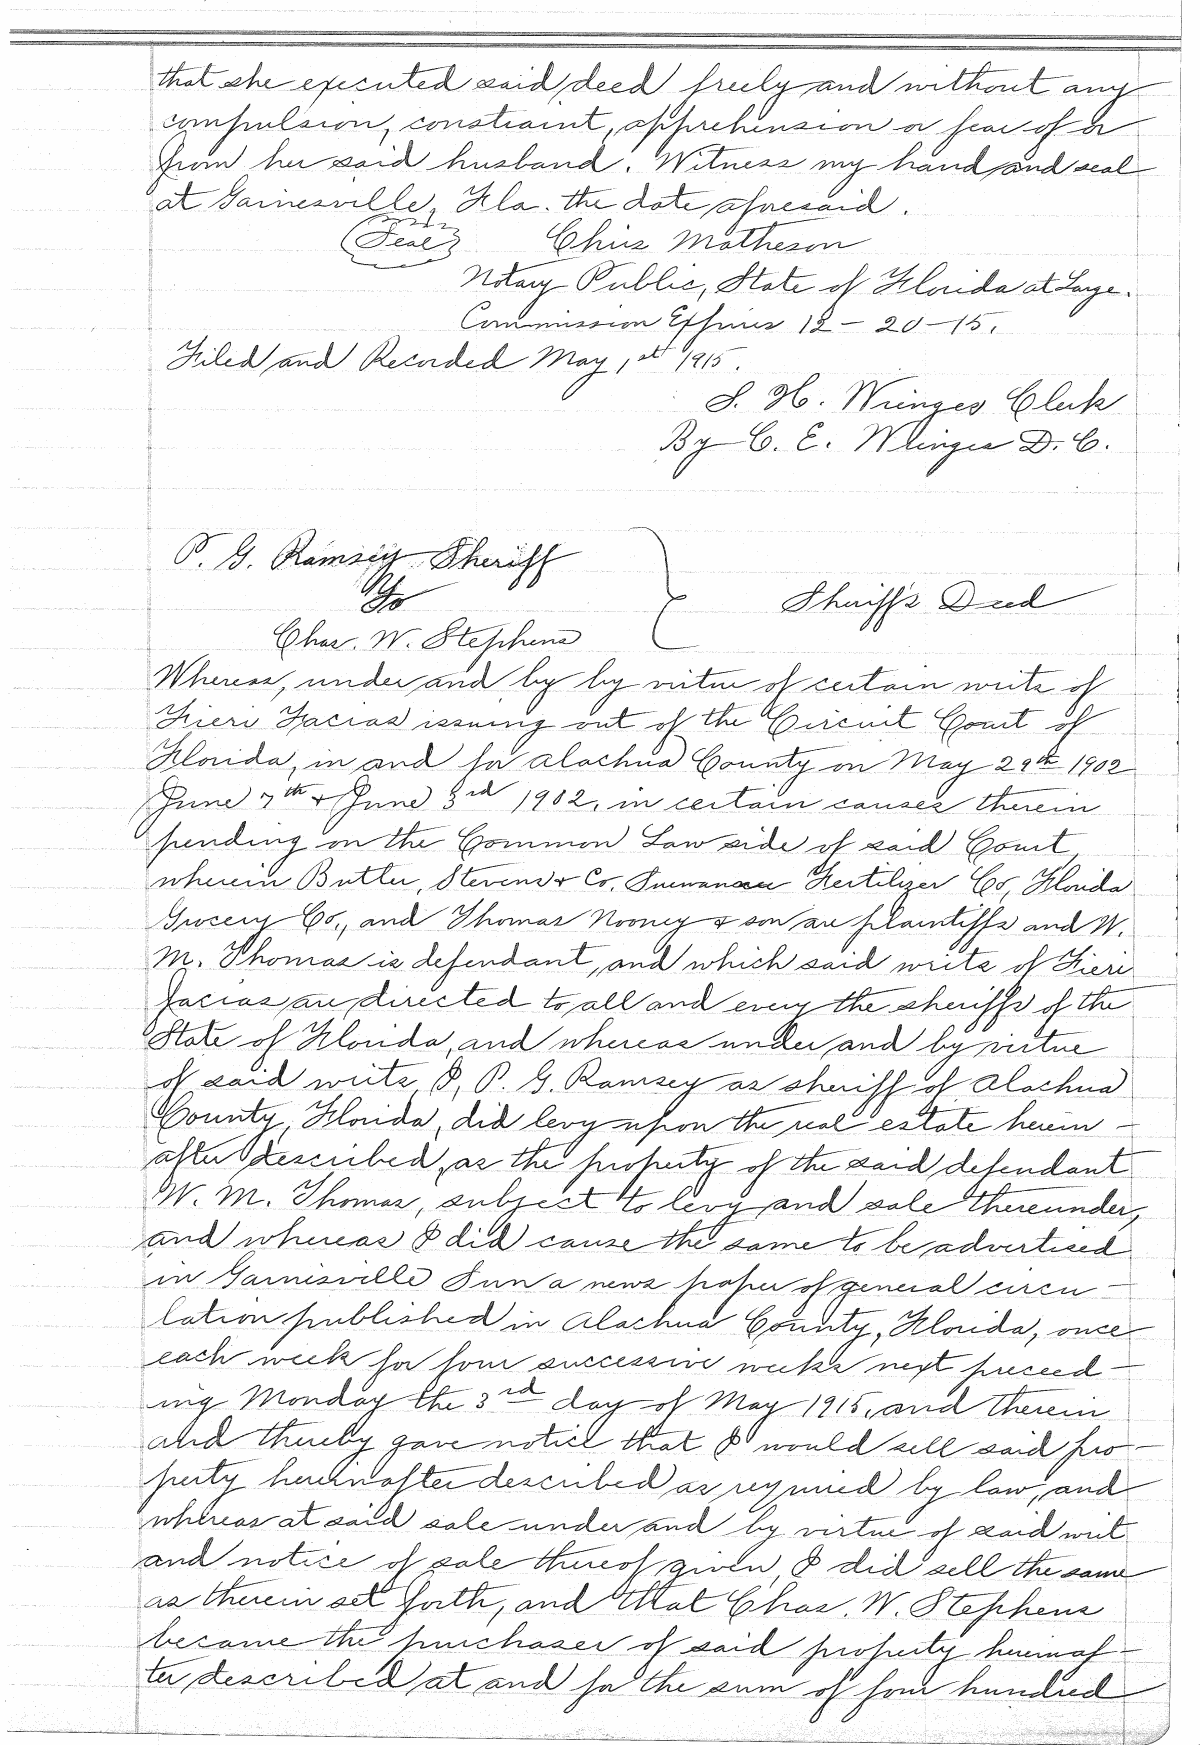 that she executed said deed freely and without any
compulsion, constraint, apprehension or fear of or
from her said husband. Witness my hand and seal
at Gainesville, Fla. the date aforesaid.
(Seal) Chris Matheson
Notary Public, State of Florida at Large.
Commission Expires 12-20-15.
Filed and Recorded May 1st 1915.
S. H. Wienges Clerk
By C. E. Wienges D. C.
P. G. Ramsey Sheriff
To
Sheriff's Deed
Chas. W. Stephens
Whereas, under and by by virtue of certain writs of
Fieri Facias issuing out of the Circuit Court of
Florida, in and for Alachua County on May 29th 1902
June 7th + June 3rd 1902, in certain causes therein
pending on the Common Law side of said Court,
wherein Butler, Stevens + Co, Suwannee Fertilizer Co, Florida
Grocery Co., and Thomas Nooney + son are plaintiffs and W.
M. Thomas is defendant, and which said writs of Fieri
facias are directed to all and every the sheriffs of the
State of Florida, and whereas under and by virtue
of said writs, I, P. G. Ramsey as sheriff of Alachua
County, Florida, did levy upon the real estate herein-
after described, as the property of the said defendant
W. M. Thomas, subject to levy and sale thereunder,
and whereas I did cause the same to be advertised
in Gainesville Sun a news paper of general circu-
lation published in Alachua County, Florida, once
each week for four successive weeks next preceed-
ing Monday the 3rd day of May 1915, and therein
and thereby gave notice that I would sell said pro-
perty hereinafter described as required by law, and
whereas at said sale under and by virtue of said writ
and notice of sale thereof given, I did sell the same
as therein set forth, and that Chas. W. Stephens
became the purchaser of said property hereinaf-
ter described at and for the sum of four hundred